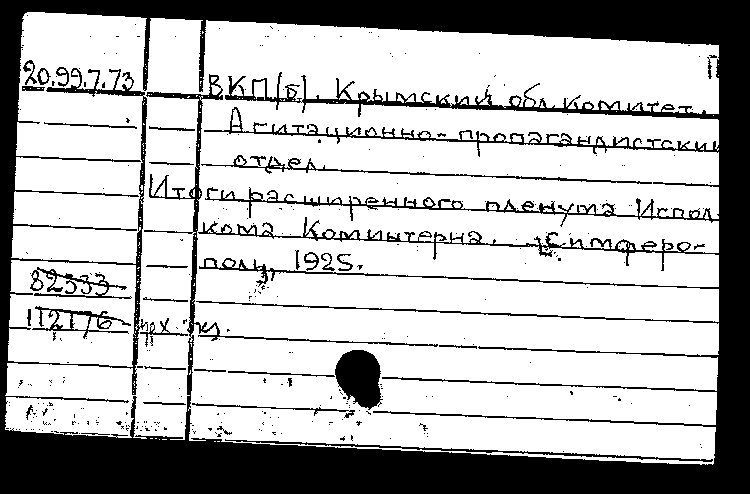 П
20.99.7.73 ВКП(б). Крымский обл. комитет.
Агитационно-пропагандистский
отдел.
Итоги расширенного пленума Испол-
кома Коминтерна. Симферо-
поль, 1925.
82333
112176 арх. экз.